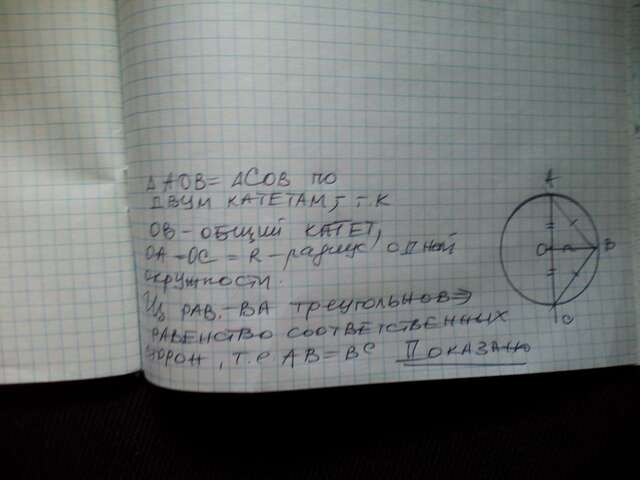 Δ АОВ = ΔСОВ ПО
ДВУМ КАТЕТАМ, Т.К
ОВ - ОБЩИЙ КАТЕТ,
ОА - ОС = R - радиус одной
окружности.
Из РАВ.-ВА треугольнов ⇒
РАВЕНСТВО СООТВЕТСТВЕННЫХ
сторон, т.е АВ = ВС Показано
А
О
В
С